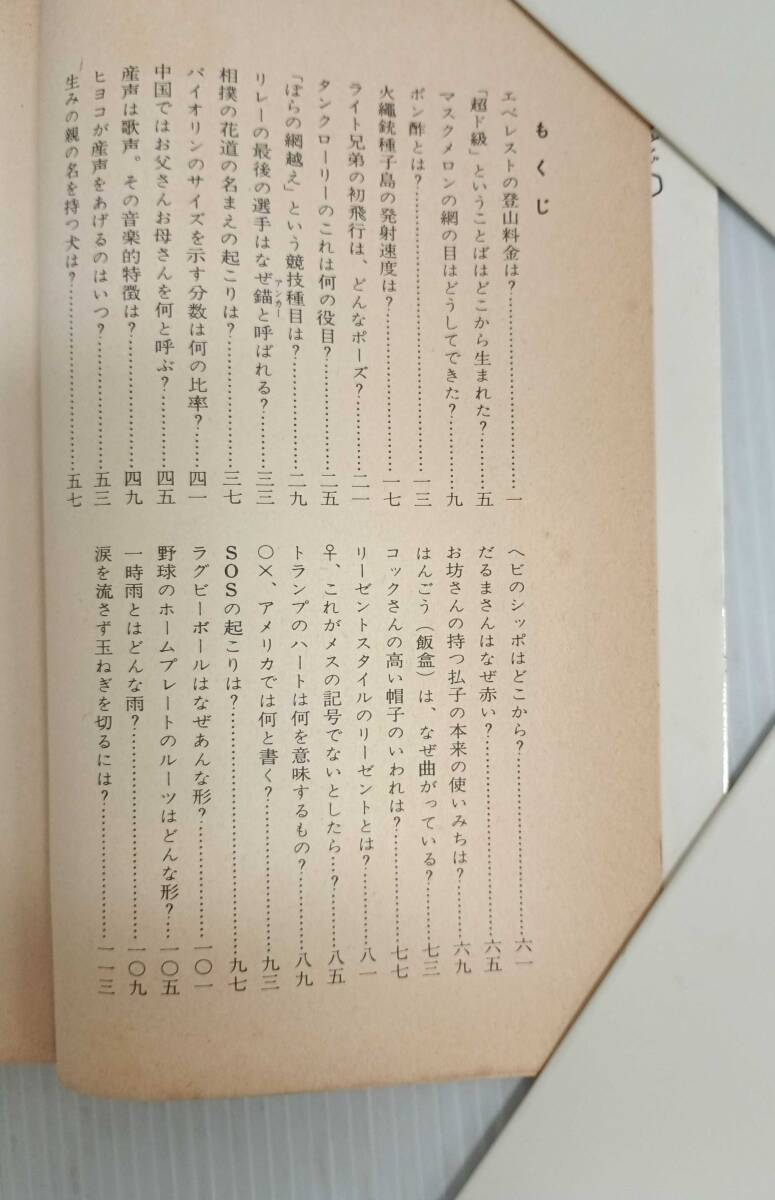 もくじ
エベレストの登山料金は？…………………………一
「超ド級」ということばはどこから生まれた？…………五
マスクメロンの網の目はどうしてできた？…………九
ポン酢とは？…………………………一三
火縄銃種子島の発射速度は？…………………………一七
ライト兄弟の初飛行は、どんなポーズ？…………二一
タンクローリーのこれは何の役目？…………二五
「ぼらの網越え」という競技種目は？…………二九
リレーの最後の選手はなぜ錨アンカーと呼ばれる？…………三三
相撲の花道の名まえの起こりは？…………三七
バイオリンのサイズを示す分数は何の比率？………四一
中国ではお父さんお母さんを何と呼ぶ？…………四五
産声は歌声。その音楽的特徴は？…………四九
ヒヨコが産声をあげるのはいつ？…………五三
生みの親の名を持つ犬は？…………………五七
ヘビのシッポはどこから？…………………六一
だるまさんはなぜ赤い？…………………六五
お坊さんの持つ払子の本来の使いみちは？…………六九
はんごう（飯盒）は、なぜ曲がっている？…………七三
コックさんの高い帽子のいわれは？…………七七
リーゼントスタイルのリーゼントとは？…………八一
♀、これがメスの記号でないとしたら…？…………八五
トランプのハートは何を意味するもの？…………八九
○×、アメリカでは何と書く？…………………九三
SOSの起こりは？…………………………九七
ラグビーボールはなぜあんな形？…………………一〇一
野球のホームプレートのルーツはどんな形？……一〇五
一時雨とはどんな雨？…………………………一〇九
涙を流さず玉ねぎを切るには？…………………一一三